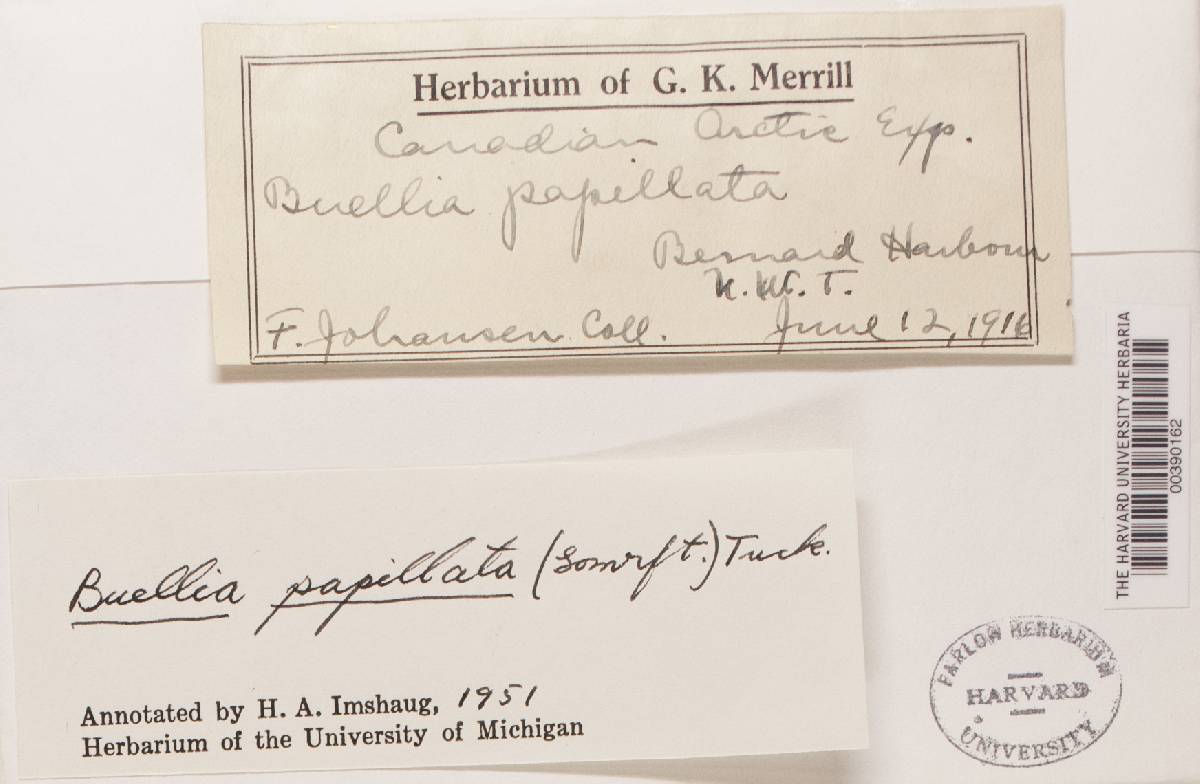 Herbarium of G. K. Merrill
Canadian Arctic Exp.
Buellia papillata
Bernard Harbour
N.W.T.
F. Johansen Coll. June 12, 1916
THE HARVARD UNIVERSITY HERBARIA
00390162
Buellia papillata (Somrft.) Tuck.
Annotated by H. A. Imshaug, 1951
Herbarium of the University of Michigan
FARLOW HERBARIUM
HARVARD
UNIVERSITY